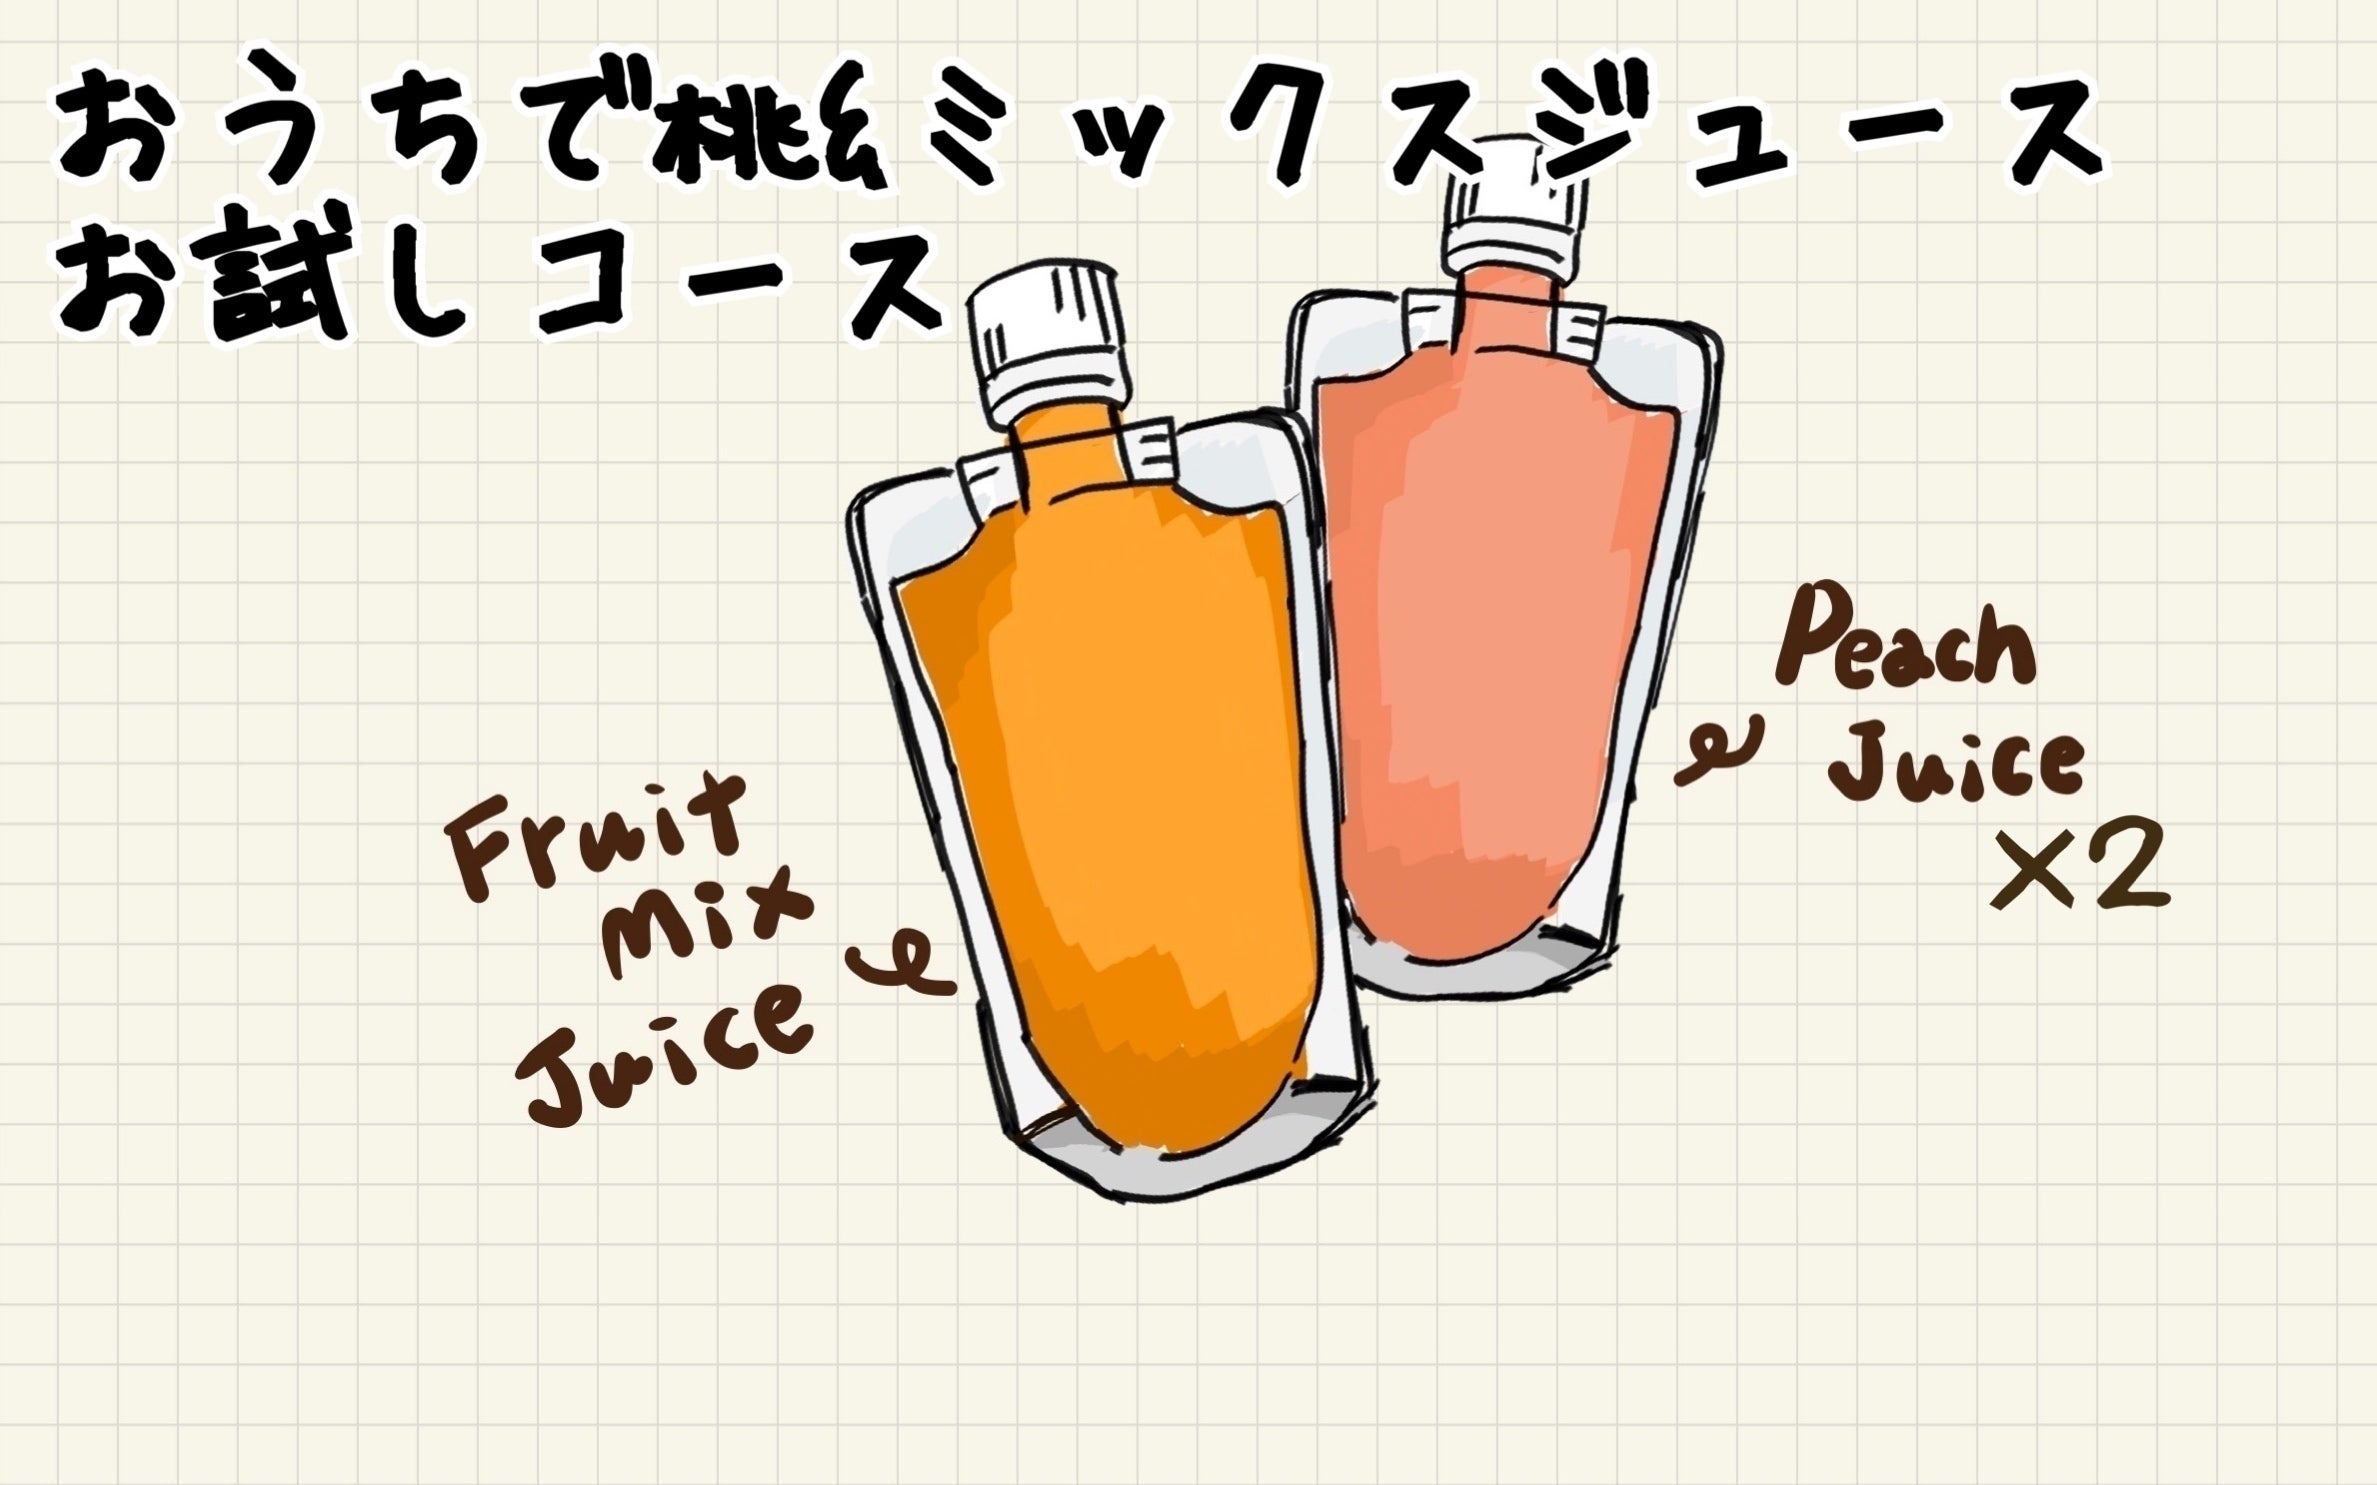 おうちで桃&ミックスジュース
お試しコース
Peach
Juice
×2
Fruit
Mix
Juice